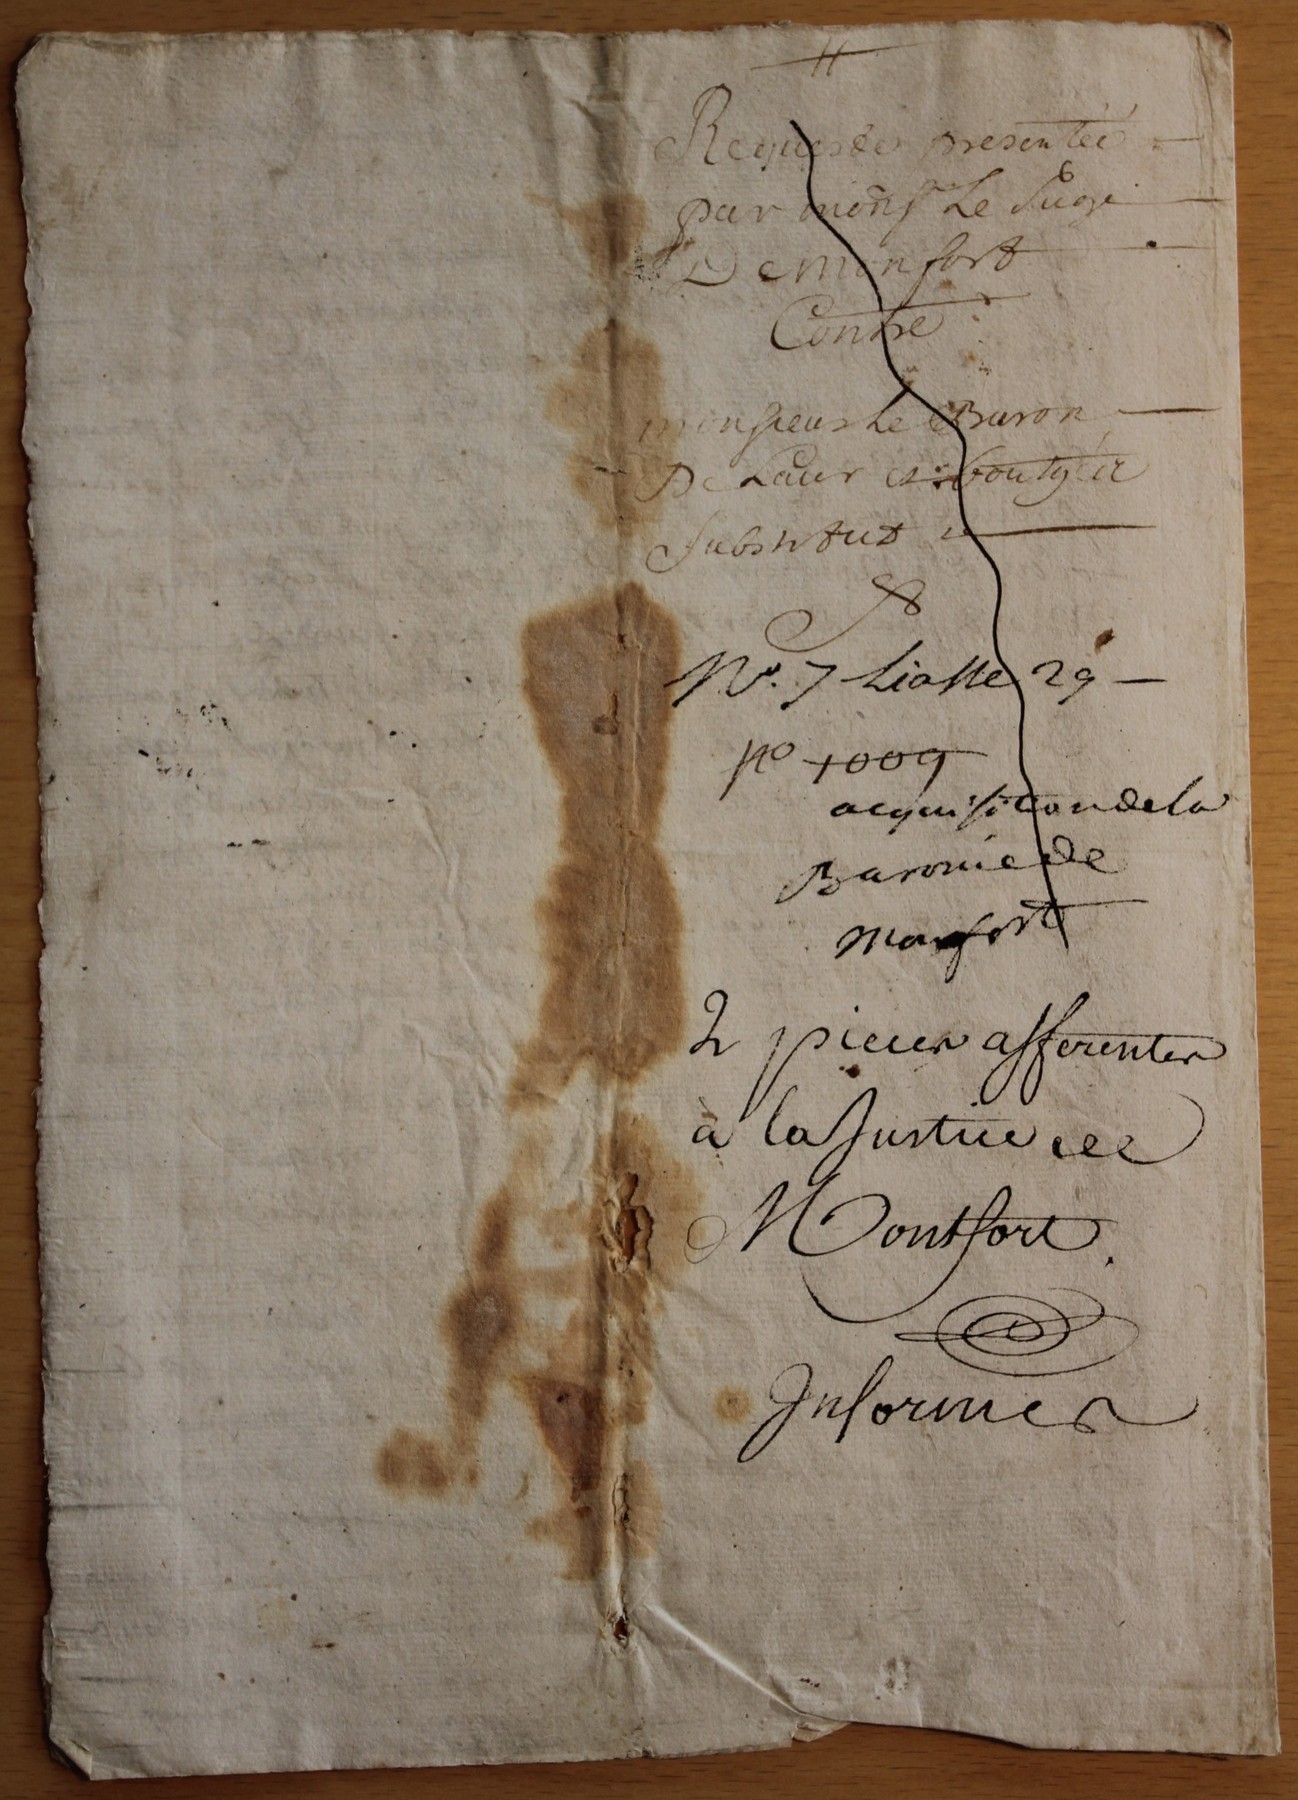 Requeste presenteé
par monsr Le Juge
De monfort
Contre
monsieur Le Baron
De Laur et
substitut
No. 7 Liasse 29
no 1009
acquisition de la
Baronie de
monfort
2 pieces afferentes
à la Justice de
Montfort.
Informer